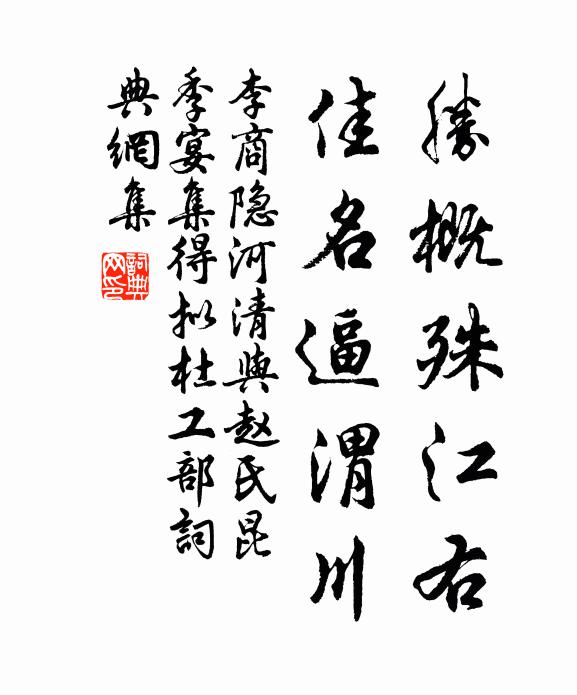 勝概殊江右
佳名逼渭川
李商隐河清與赵氏昆
季宴集得拟杜工部詞
典網集
詞典网印